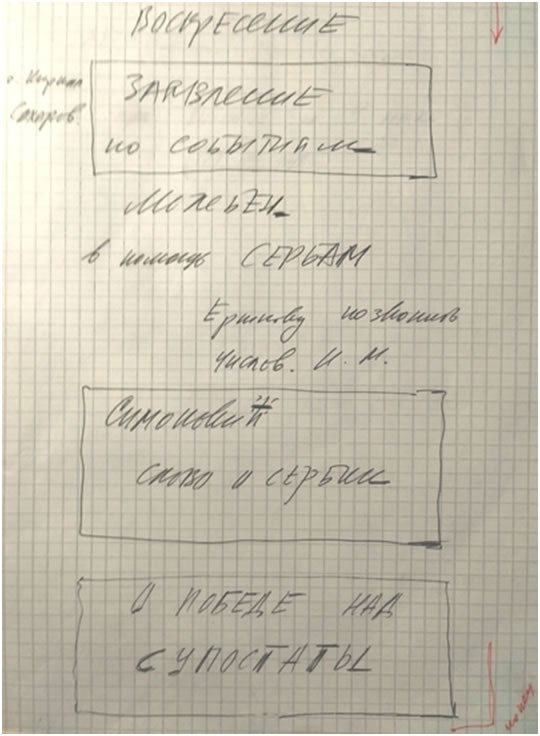 Воскресение
о. Кирилл
Сахаров.
ЗАЯВЛЕНИЕ
по СОБЫТИЯМ
Молебен
в помощь СЕРБАМ
позвонить
Числов. И. М.
Симонович
слово о СЕРБИИ
О ПОБЕДЕ НАД
СУПОСТАТЫ